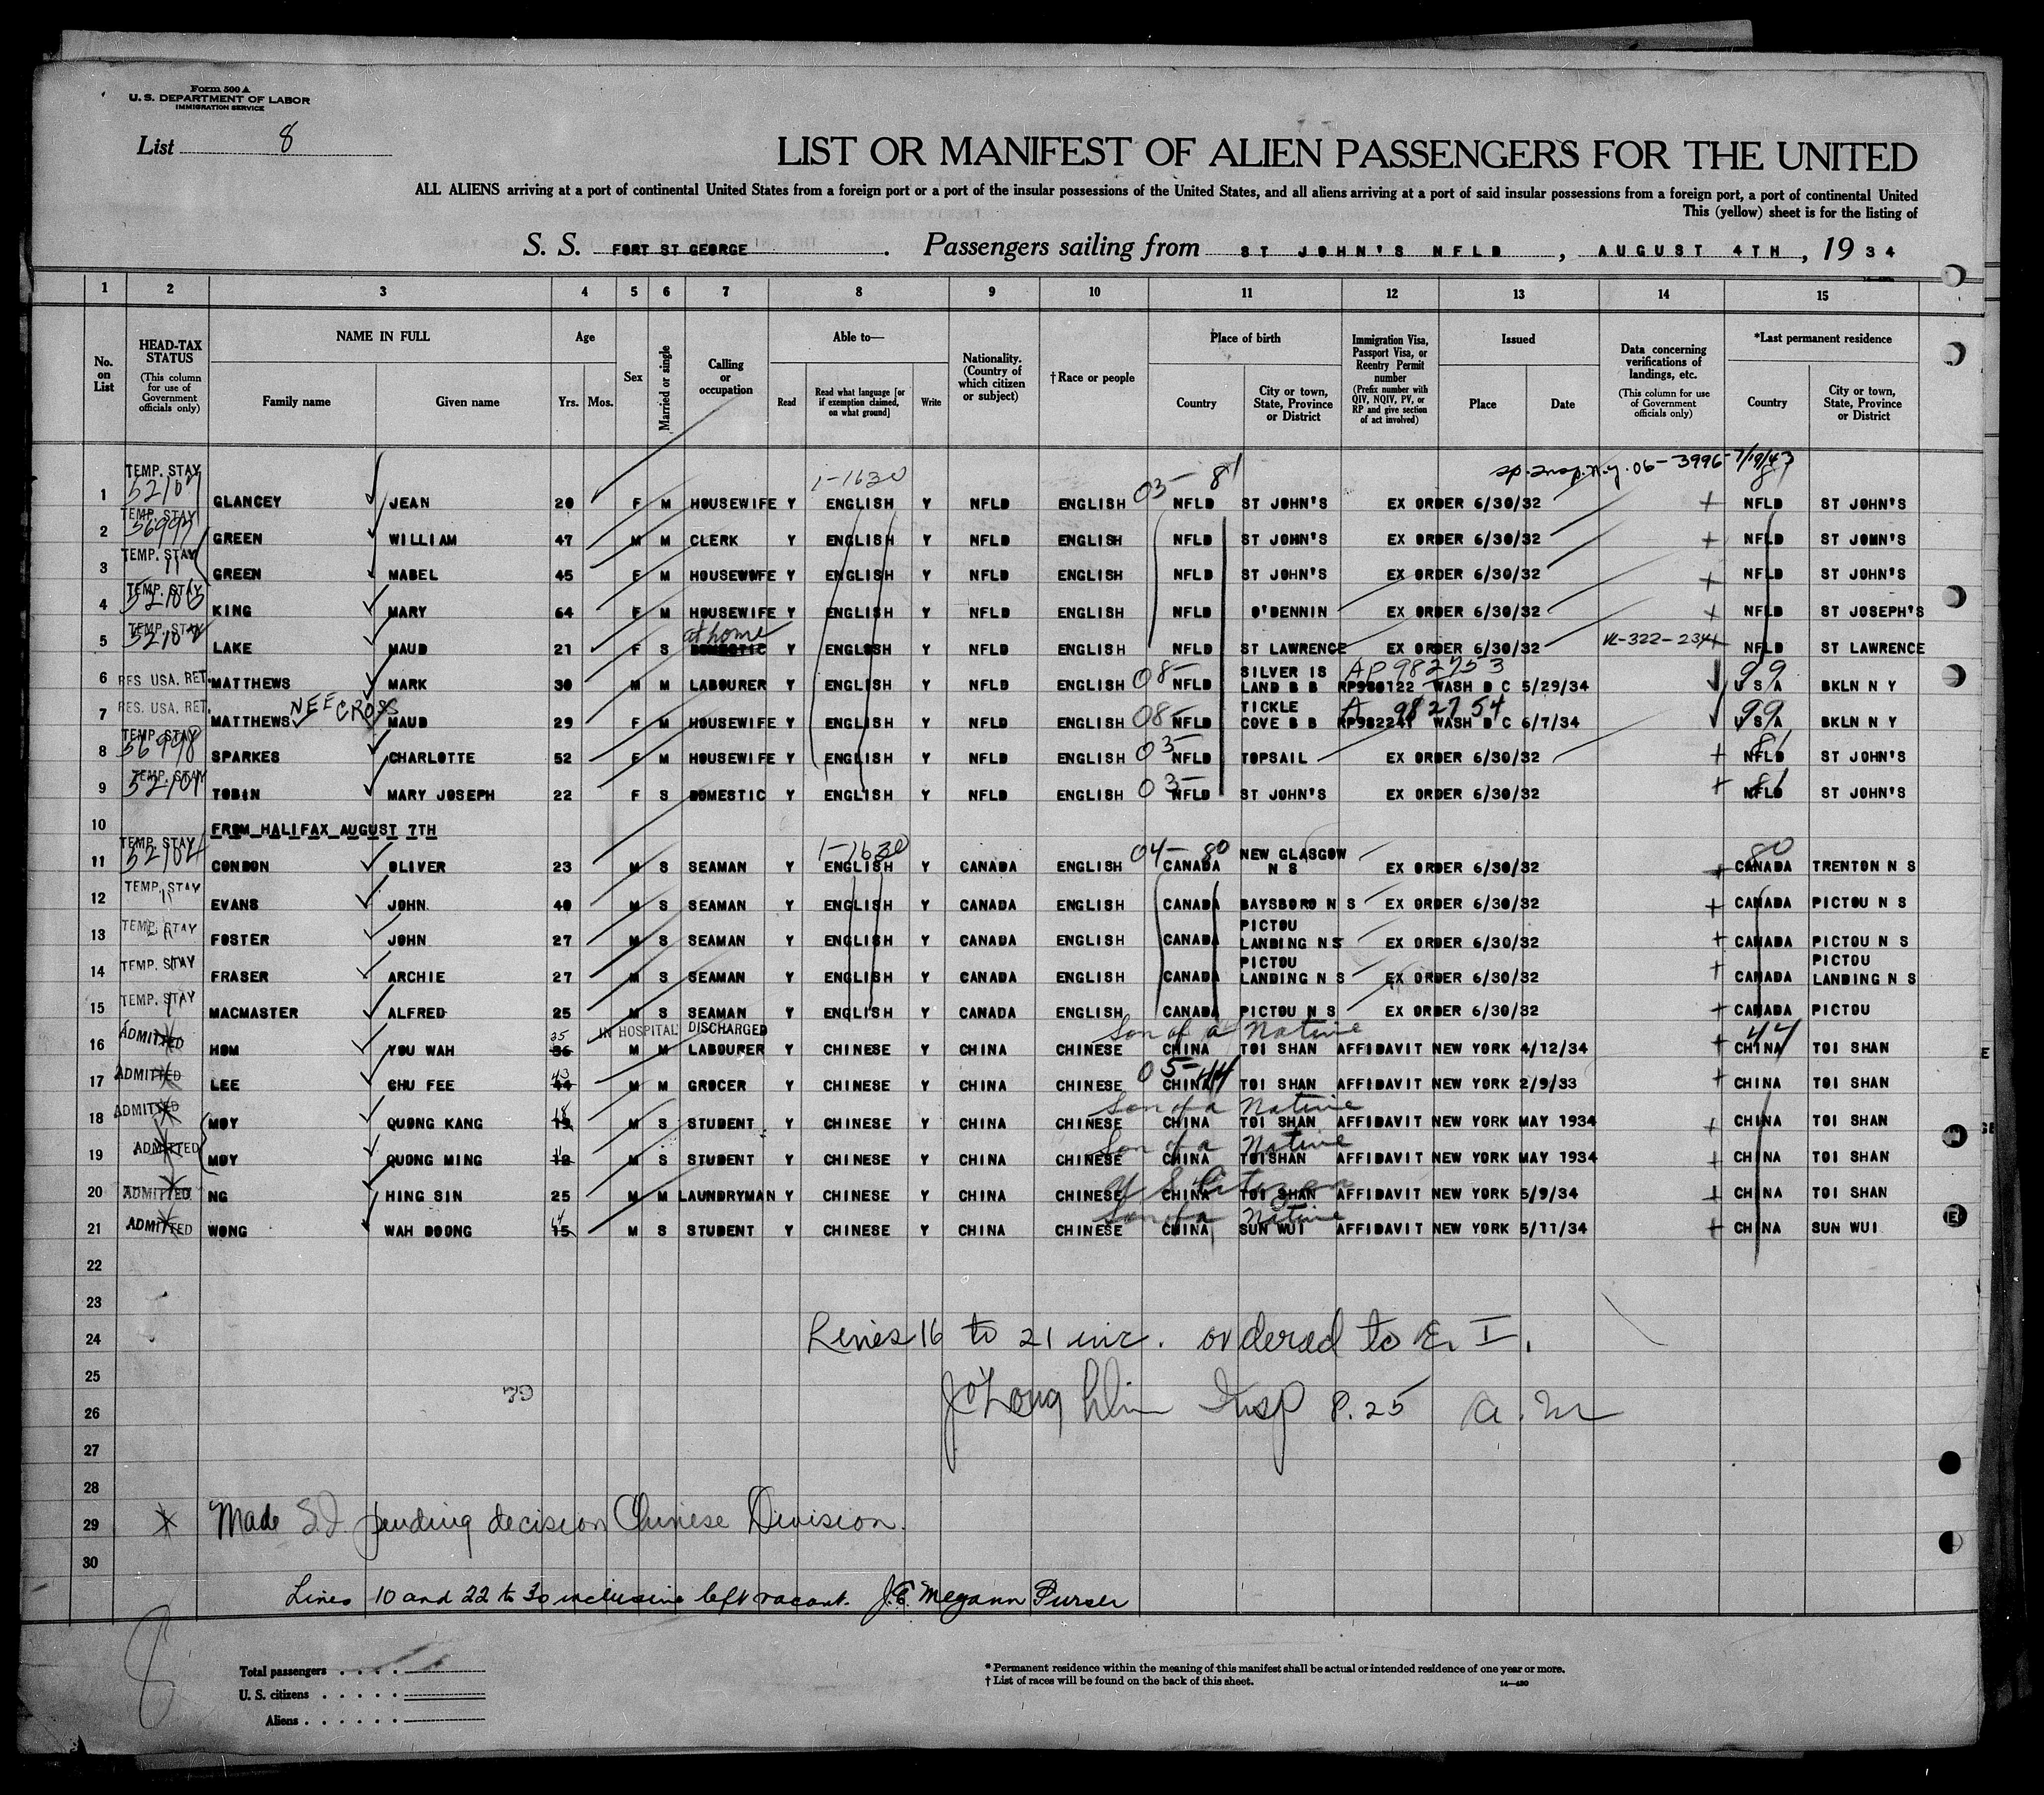 Form 500 A
U. S. DEPARTMENT OF LABOR
IMMIGRATION SERVICE
List 8
LIST OR MANIFEST OF ALIEN PASSENGERS FOR THE UNITED
ALL ALIENS arriving at a port of continental United States from a foreign port or a port of the insular possessions of the United States, and all aliens arriving at a port of said insular possessions from a foreign port, a port of continental United
This (yellow) sheet is for the listing of
S. S. FORT ST GEORGE. Passengers sailing from ST JOHN'S NFLD, AUGUST 4TH, 1934
1 2 3 4 5 6 7 8 9 10 11 12 13 14 15
No. on List
HEAD-TAX STATUS (This column for use of Government officials only)
NAME IN FULL Family name Given name
Age Yrs. Mos.
Sex
Married or single
Calling or occupation
Able to— Read Read what language [or if exemption claimed, on what ground] Write
Nationality. (Country of which citizen or subject)
†Race or people
Place of birth Country City or town, State, Province or District
Immigration Visa, Passport Visa, or Reentry Permit number (Prefix number with QIV, NQIV, PV, or RP and give section of act involved)
Issued Place Date
Data concerning verifications of landings, etc. (This column for use of Government officials only)
*Last permanent residence Country City or town, State, Province or District
06-3996-7/19/43
1-1630 03- 81
1 TEMP. STAY 52107 GLANCEY JEAN 20 F M HOUSEWIFE Y ENGLISH Y NFLD ENGLISH NFLD ST JOHN'S EX ORDER 6/30/32 + NFLD ST JOHN'S
2 TEMP. STAY 56997 GREEN WILLIAM 47 M M CLERK Y ENGLISH Y NFLD ENGLISH NFLD ST JOHN'S EX ORDER 6/30/32 + NFLD ST JOHN'S
3 TEMP. STAY " GREEN MABEL 45 F M HOUSEWWFE Y ENGLISH Y NFLD ENGLISH NFLD ST JOHN'S EX ORDER 6/30/32 + NFLD ST JOHN'S
4 TEMP. STAY KING MARY 64 F M HOUSEWIFE Y ENGLISH Y NFLD ENGLISH NFLD O'DENNIN EX ORDER 6/30/32 + NFLD ST JOSEPH'S
at home
5 TEMP. STAY LAKE MAUD 21 F S DOMESTIC Y ENGLOSH Y NFLD ENGLISH NFLD ST LAWRENCE EX ORDER 6/30/32 VL-322-2341 NFLD ST LAWRENCE
6 RES. USA. RET. MATTHEWS MARK 30 M M LABOURER Y ENGLISH Y NFLD ENGLISH 08- NFLD SILVER IS LAND B B AP982753 RP980122 WASH D C 5/29/34 99 U S A BKLN N Y
7 RES. USA. RET. MATTHEWS NEE CROSS MAUD 29 F M HOUSEWIFE Y ENGLISH Y NFLD ENGLISH 08- NFLD TICKLE COVE B B A 982754 RP982241 WASH D C 6/7/34 99 U S A BKLN N Y
8 TEMP. STAY 56998 SPARKES CHARLOTTE 52 F M HOUSEWIFE Y ENGLISH Y NFLD ENGLISH 03- NFLD TOPSAIL EX ORDER 6/30/32 + 81 NFLD ST JOHN'S
9 TEMP. STAY TOBIN MARY JOSEPH 22 F S DOMESTIC Y ENGLISH Y NFLD ENGLISH 03- NFLD ST JOHN'S EX ORDER 6/30/32 + 81 NFLD ST JOHN'S
10 FROM HALIFAX AUGUST 7TH
1-1630 04- 80 80
11 TEMP. STAY 52104 CONDON OLIVER 23 M S SEAMAN Y ENGLISH Y CANADA ENGLISH CANADA NEW GLASGOW N S EX ORDER 6/30/32 + CANADA TRENTON N S
12 TEMP. STAY " EVANS JOHN 40 M S SEAMAN Y ENGLISH Y CANADA ENGLISH CANADA BAYSBORO N S EX ORDER 6/30/32 + CANADA PICTOU N S
13 TEMP. STAY " FOSTER JOHN 27 M S SEAMAN Y ENGLISH Y CANADA ENGLISH CANADA PICTOU LANDING N S EX ORDER 6/30/32 + CANADA PICTOU N S
14 TEMP. STAY " FRASER ARCHIE 27 M S SEAMAN Y ENGLISH Y CANADA ENGLISH CANADA PICTOU LANDING N S EX ORDER 6/30/32 + CANADA PICTOU LANDING N S
15 TEMP. STAY " MACMASTER ALFRED 25 M S SEAMAN Y ENGLISH Y CANADA ENGLISH CANADA PICTOU N S EX ORDER 6/30/32 + CANADA PICTOU
IN HOSPITAL DISCHARGED Son of a Native 44
16 ADMITTED HOM YOU WAH 35 36 M M LABOURER Y CHINESE Y CHINA CHINESE CHINA TOI SHAN AFFIDAVIT NEW YORK 4/12/34 + CHINA TOI SHAN
17 ADMITTED LEE CHU FEE 43 44 M M GROCER Y CHINESE Y CHINA CHINESE 05-44 CHINA TOI SHAN AFFIDAVIT NEW YORK 2/9/33 + CHINA TOI SHAN
Son of a Native
18 ADMITTED MOY QUONG KANG 18 19 M S STUDENT Y CHINESE Y CHINA CHINESE CHINA TOI SHAN AFFIDAVIT NEW YORK MAY 1934 + CHINA TOI SHAN
Son of a Native
19 ADMITTED MOY QUONG MING 11 12 M S STUDENT Y CHINESE Y CHINA CHINESE CHINA TOISHAN AFFIDAVIT NEW YORK MAY 1934 + CHINA TOI SHAN
U S Citizen
20 ADMITTED NG HING SIN 25 M M LAUNDRYMAN Y CHINESE Y CHINA CHINESE CHINA TOI SHAN AFFIDAVIT NEW YORK 5/9/34 + CHINA TOI SHAN
Son of a Native
21 ADMITTED WONG WAH DOONG 14 15 M S STUDENT Y CHINESE Y CHINA CHINESE CHINA SUN WUI AFFIDAVIT NEW YORK 5/11/34 + CHINA SUN WUI
22
23
24 Lines 16 to 21 inc. ordered to E. I.
25
26 J O'Loughlin Insp 8.25 a.m
27
28
29 * Made S.I. pending decision Chinese Division.
30
Lines 10 and 22 to 30 inclusive left vacant. J.E. Megann Purser
8
Total passengers
U. S. citizens
Aliens
* Permanent residence within the meaning of this manifest shall be actual or intended residence of one year or more.
† List of races will be found on the back of this sheet.
14—430